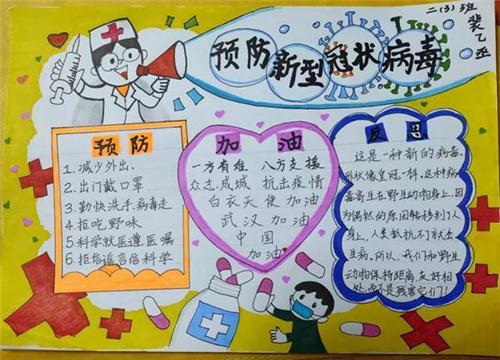 二(3)班
裴乙丞
预防新型冠状病毒
预防
1.减少外出.
2.出门戴口罩
3.勤快洗手病毒走
4.拒吃野味
5.科学就医遵医嘱
6.拒信谣言倍科学
加油
一方有难 八方支援
众志成城 抗击疫情
白衣天使加油
武汉加油
中国
加油
反思
这是一种新的病毒,
形状像皇冠一样,这种病
毒寄生在野生动物身上,因
为偶然的原因触移到了人
身上,人类抵抗不了就会
生病。所以,我们和野生
动物保持距离,友好相
处,而不是残害它们!